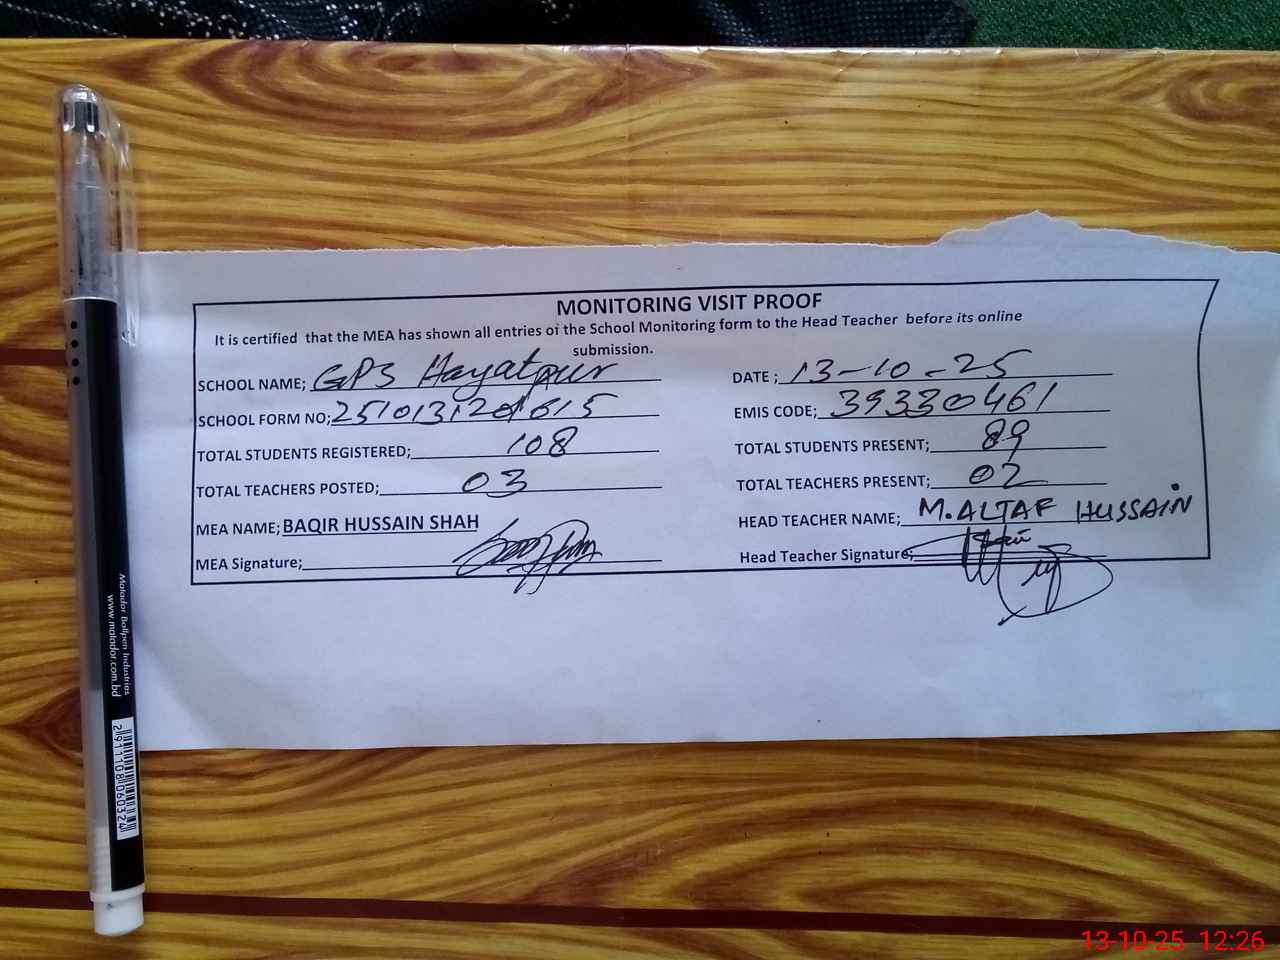 MONITORING VISIT PROOF
It is certified that the MEA has shown all entries of the School Monitoring form to the Head Teacher before its online
submission.
SCHOOL NAME; GPS Hayatpur DATE ; 13-10-25
SCHOOL FORM NO; EMIS CODE; 39330461
TOTAL STUDENTS REGISTERED; 108 TOTAL STUDENTS PRESENT; 89
TOTAL TEACHERS POSTED; 03 TOTAL TEACHERS PRESENT; 02
MEA NAME; BAQIR HUSSAIN SHAH HEAD TEACHER NAME; M.ALTAF HUSSAIN
MEA Signature; Head Teacher Signature;
Matador Ballpen Industries
www.matador.com.bd
2911108060324
13-10-25 12:26